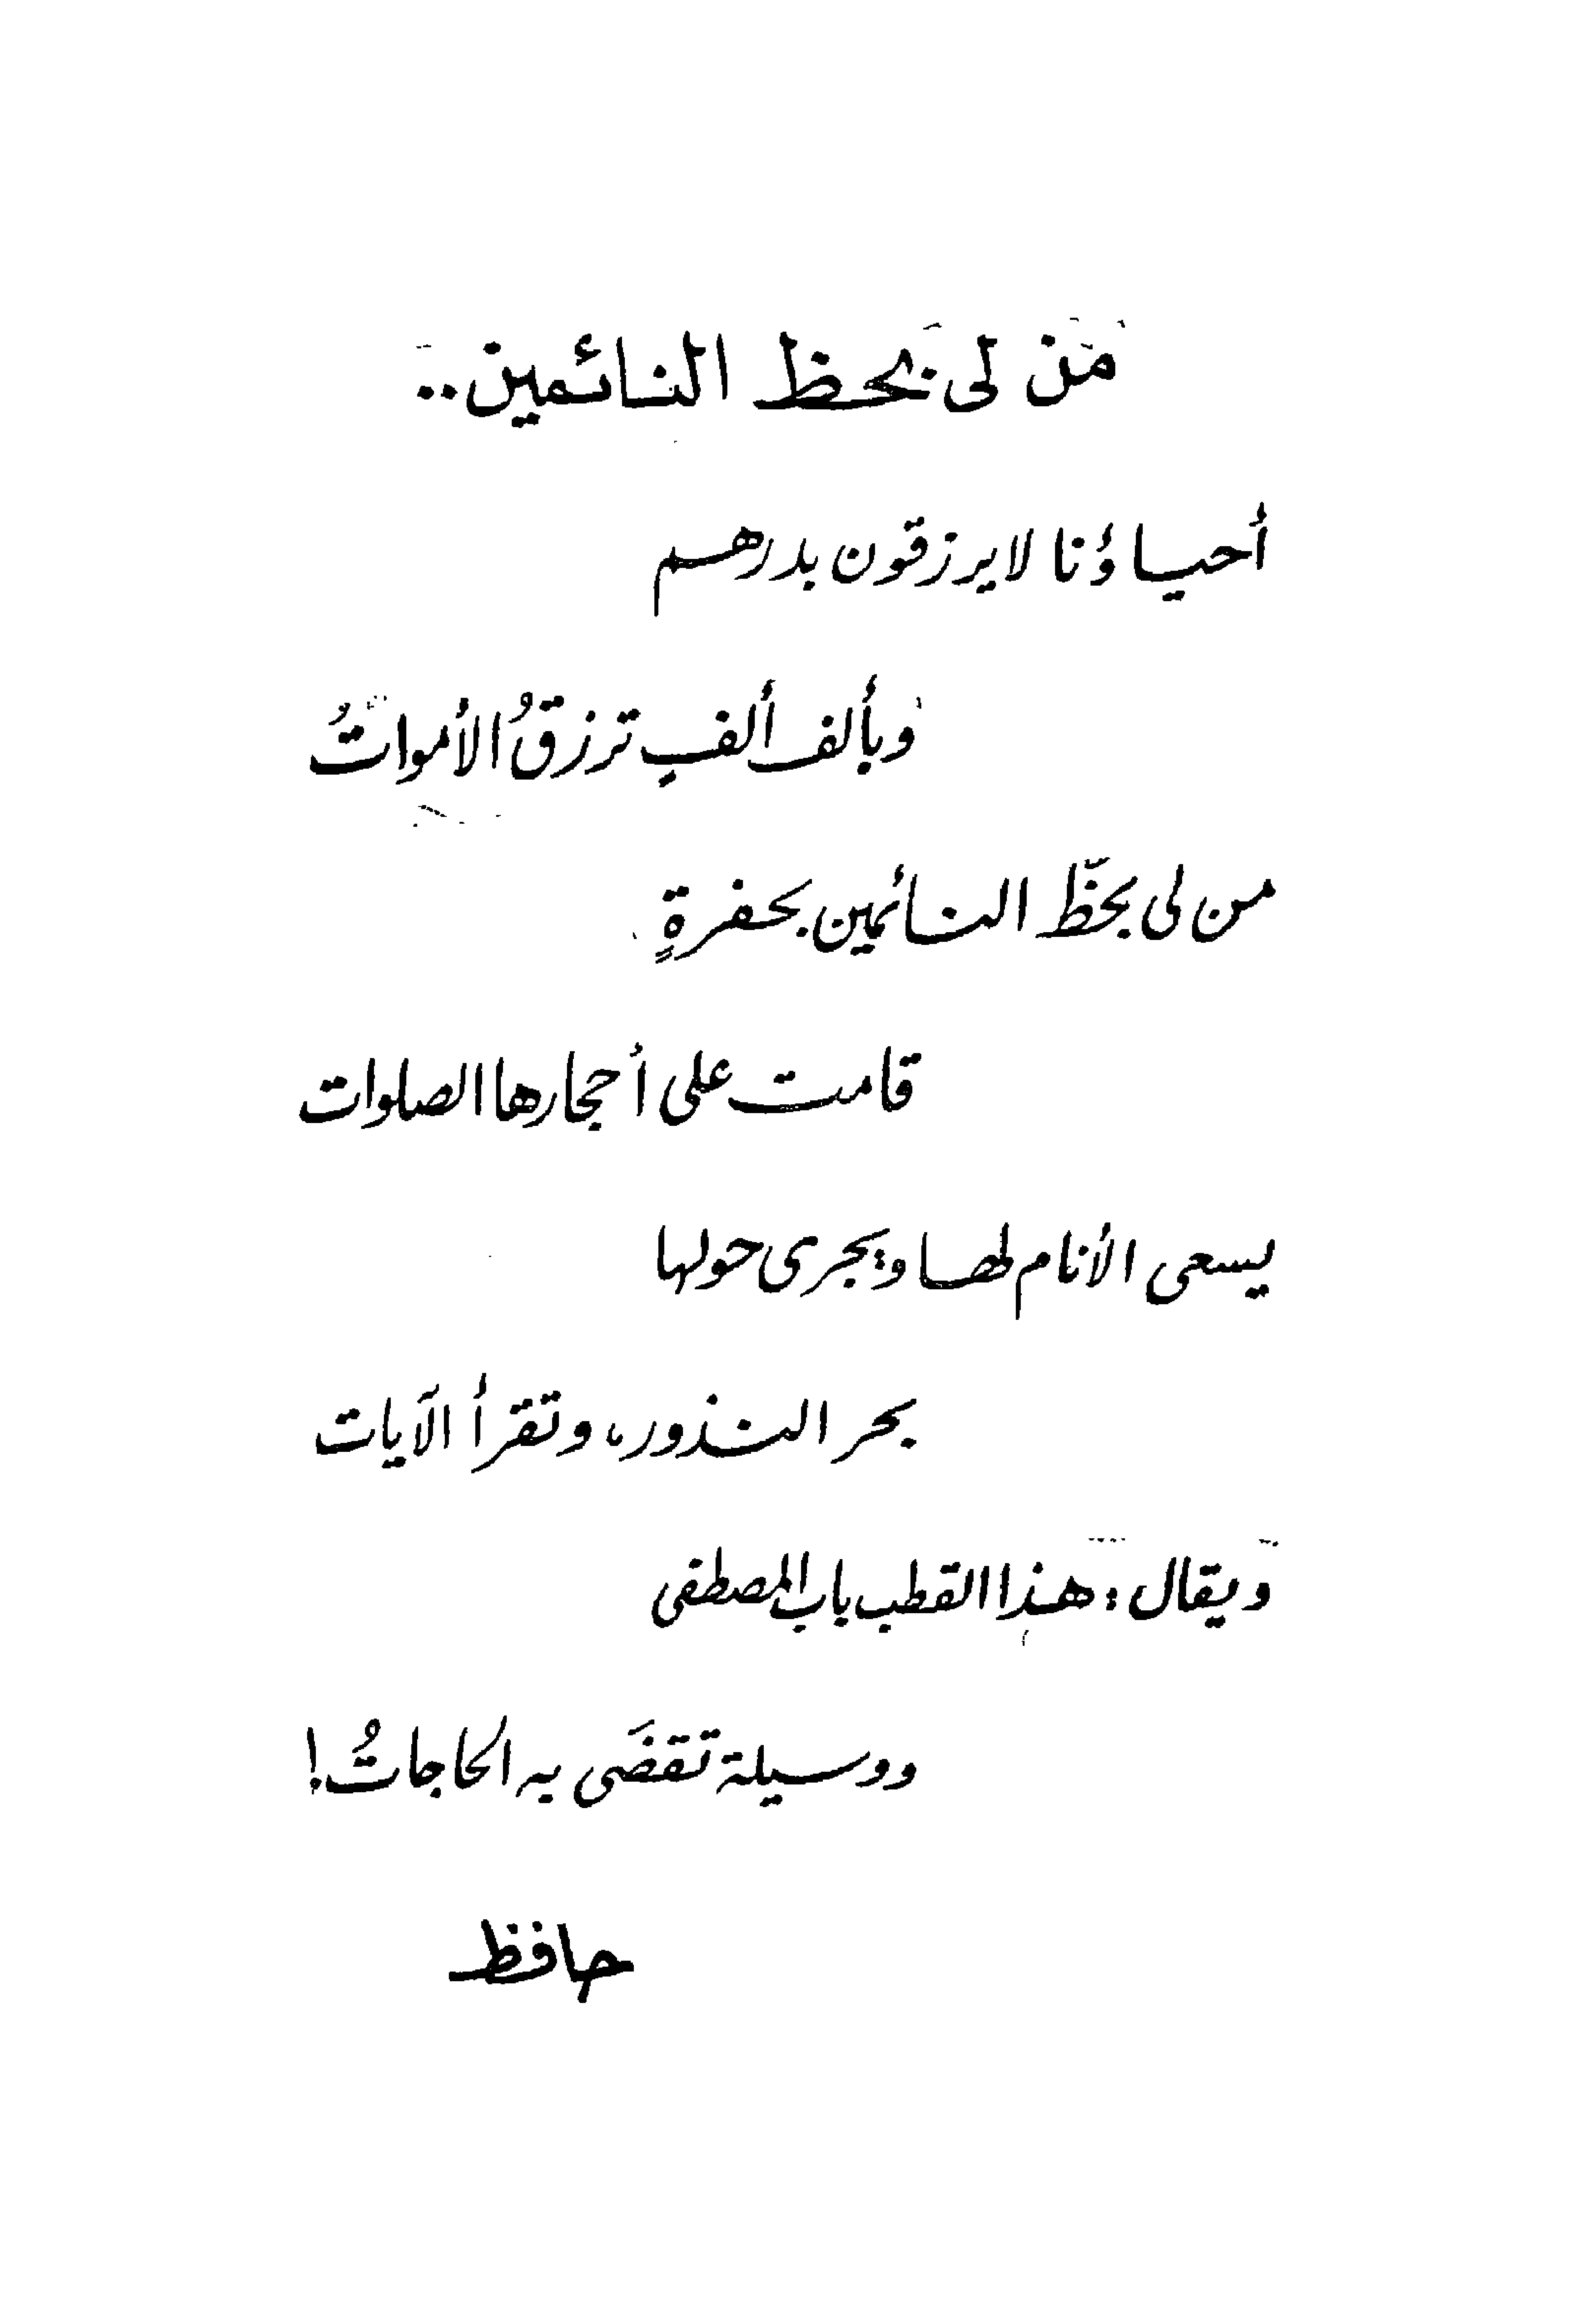 من لى بحظ النائمين..
أحياؤنا لا يرزقون بدرهم
وبألف ألفٍ ترزقُ الأمواتُ
من لى بحظّ النائمين بحفرةٍ
قامت على أحجارها الصلوات
يسعى الأنام لها ويجرى حولها
بحر النذور، وتقرأ الآيات
ويقال: هذا القطب باب المصطفى
ووسيلة تقضَى به الحاجاتُ!
حافظ